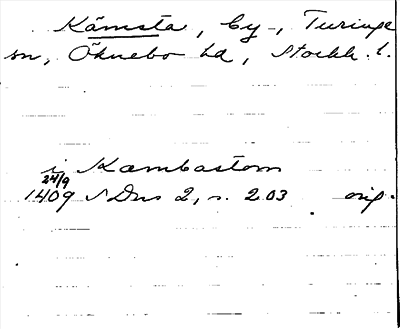 Kämsta, by, Turinge
sn, Öknebo hd, Stockh. l.
i Kambastom
24/9
1409 SDns 2, s. 203 orig.